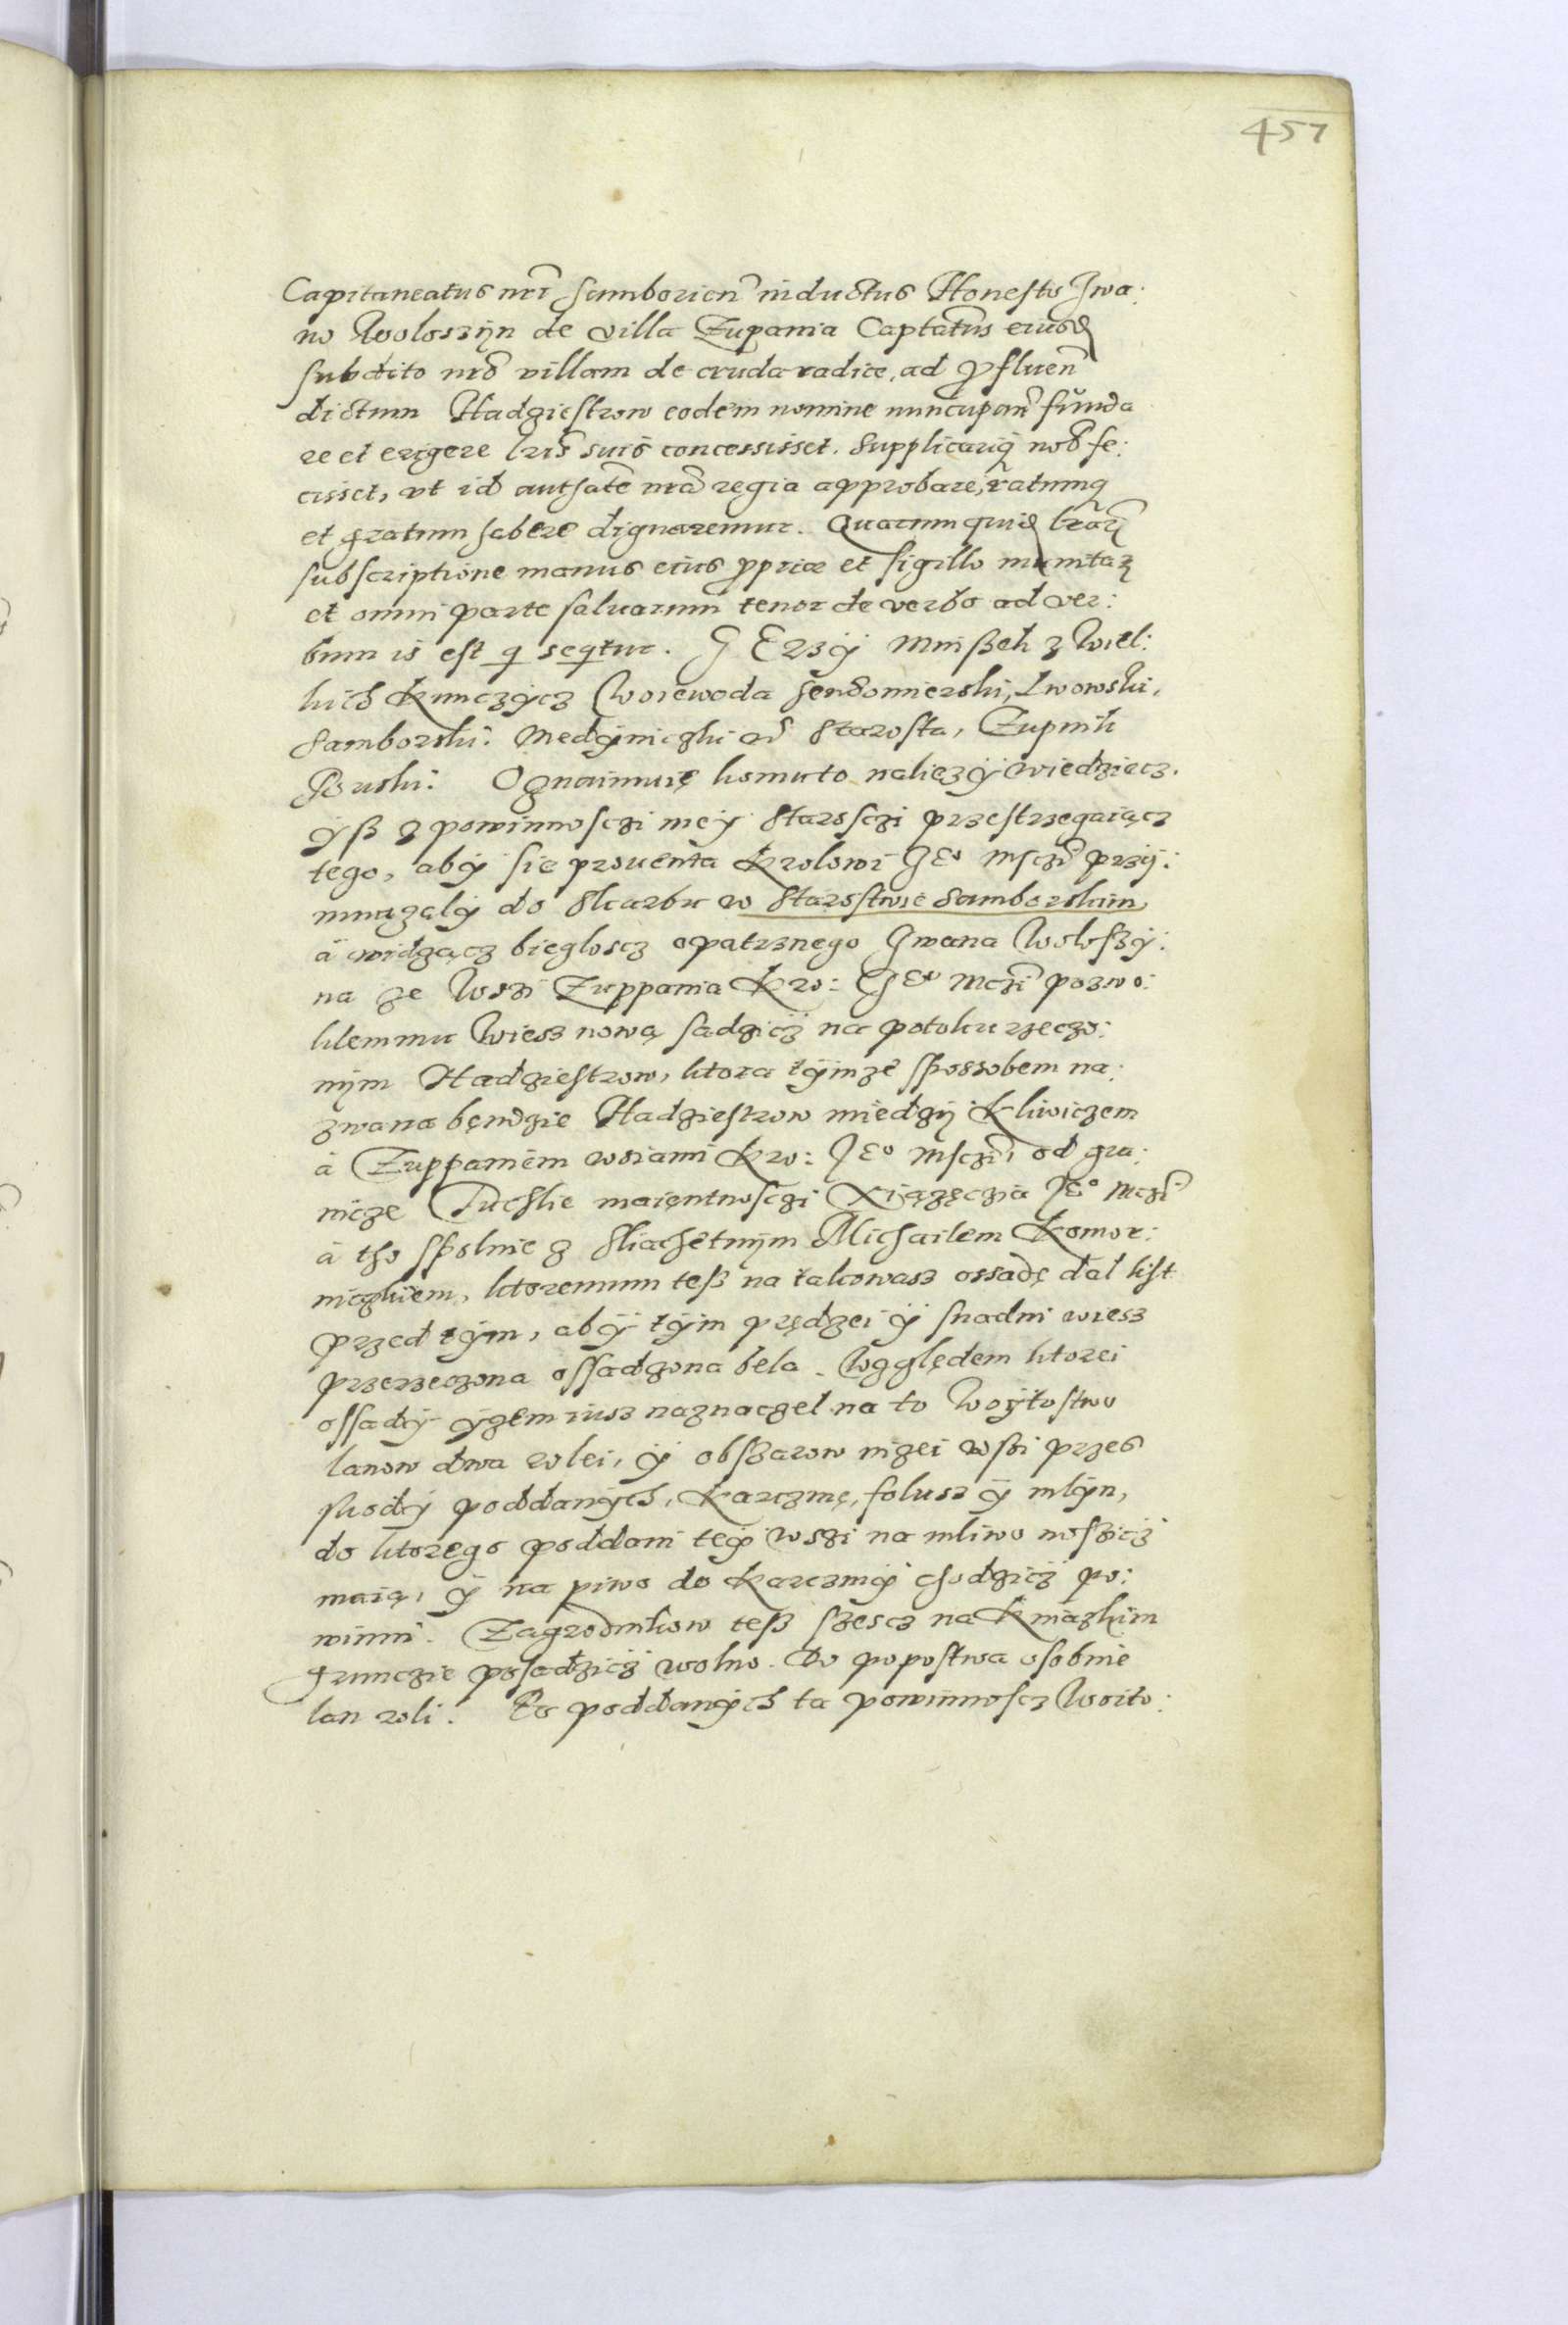 457
Capitaneatus nrĩ Samborien̄ inductus Honesto Iwa:
no Wolosziÿn de villa Zupania Captatũs eiusd
subdito nrõ villam de cruda radice, ad pfluen̄
dictum Hadziestrow eodem nomine nuncupan̄ funda
re et erigere lrĩs suis concessisset. Supplicariq nob̃ fe:
cisset, vt id authatẽ nrã regia approbare, ratumq
et gratum habere dignaremur. Quarumquid lrãr̃
subscriptione manus eius ppriæ et sigillo munitar
et omni parte saluarum tenor de verbo ad ver:
bum is est q seqtur. I Erzÿ Mnißek z Wiel:
kich Kunczÿcz Woiewoda Sendomierski, Lwowski,
Samborski: Medÿniczki ec̃ Starosta, Zupnik
Ruski: Oznaimuię komu to nalieżÿ wiedziecz.
ÿß z powinnosczi meÿ Starosczi przestrzegaiącz
tego, abÿ sie prouenta Krolowi IEº Msczĩ przÿ:
mnazalÿ do Skarbu w Starostwie Samborskim,
á widząncz biegloscz opatrznego Iwana Wolosżÿ:
na ze Wszi Zuppania Kro: IEº Mczĩ pozwo:
lilem mu Wiesz nową sadzicz na potoku rzeczo:
nÿm Hadziestrow, ktora tÿmze sposzobem na:
zwana bęndzie Hadziestrow miedzÿ Kliwiczem
á Zuppaniem wsiami Kro: IEº Msczĩ, od gra:
nicze Tuchlie maientnosczi Xiązęczia IEº Mczĩ
á tho spolnie z Sliachetnÿm Michailem Komor:
niczkiem, ktoremum teß na takowasz ossadę dal list
przed tÿm, abÿ tÿm prędzei ÿ snadni wiesz
przerzeczona ossadzona bela. Względem ktorei
ossadÿ ÿzem iusz naznaczel na to Woÿtostwo
lanow dwa rolei, ÿ obszarow nizei wsżi przes
skodÿ poddanÿch, Karczmę, folusz ÿ mlÿn,
do ktorego poddani teÿ wszi na mliwo nosżicz
maią, ÿ na piwo do Karczmÿ chodzicz po:
winni. Zagrodnikow teß szescz na Kniazkim
gruncie posadzicz wolno. Do popostwa osobnie
lan roli. Po poddanÿch ta powinnoscz Woito: